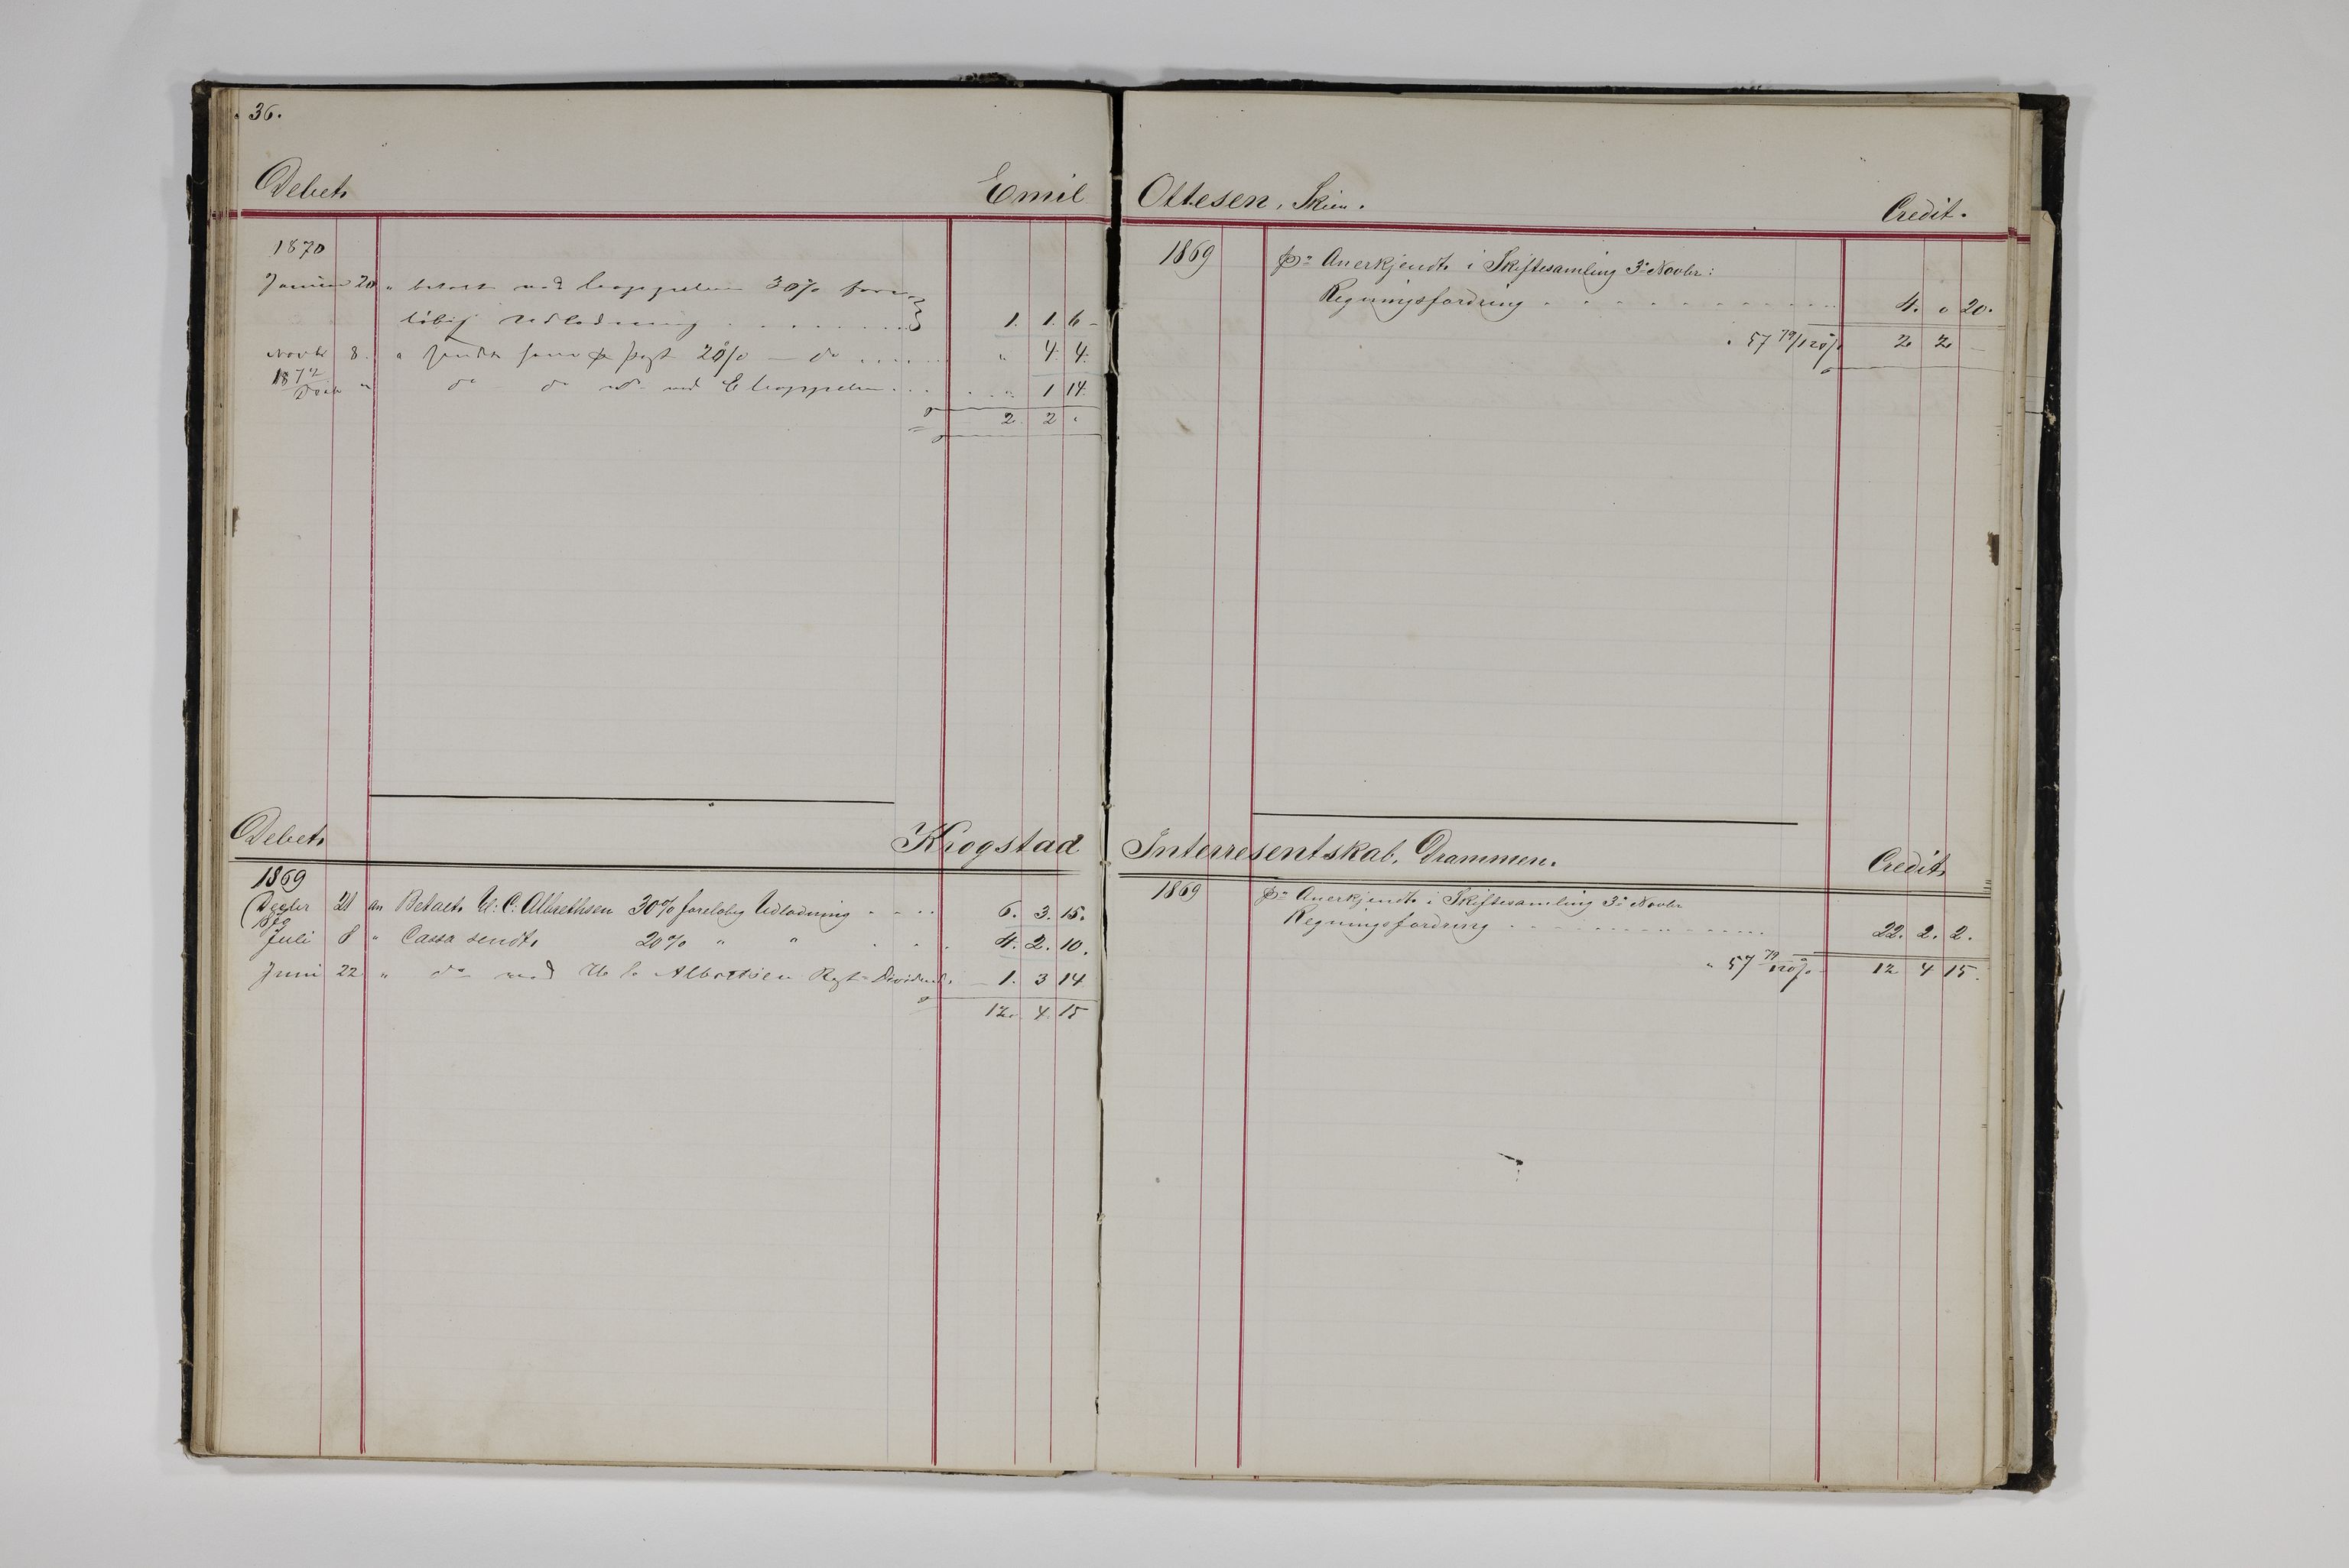 36.
Debet.
Emil
1870
Januar 20 " betalt ved 30% fore-
löbig Udlodning . . . . . . . . 1. 1. 6 -
Novbr 8. " sendt ham pr post 20% — do . . . . . " 4. 4.
1872
" do do ved . . . . . " 1 14.
2. 2 "
Debet.
Krogstad
1869
Decbr 21 an Betalt U. C. Albrethsen 30% foreløbig Udlodning . . . . 6. 3. 15.
1870
Juli 8 " Cassa sendt 20% " " . . . 4. 2. 10.
Juni 22 " do ved U. C. Albrethsen Rest Dividend. — 1. 3 14
12. 4. 15
Ottesen, Skien.
Credit.
1869 pr Anerkjendt i Skiftesamling 3' Novbr:
Regningsfordring . . . . . . . . . . . . . . 4. " 20.
" 57 79/120 % 2 2 —
Interresentskab, Drammen.
Credit.
1869 pr Anerkjendt i Skiftesamling 3' Novbr
Regningsfordring . . . . . . . . . . . . . . 22. 2. 2.
" 57 79/120 % 12 4 15.